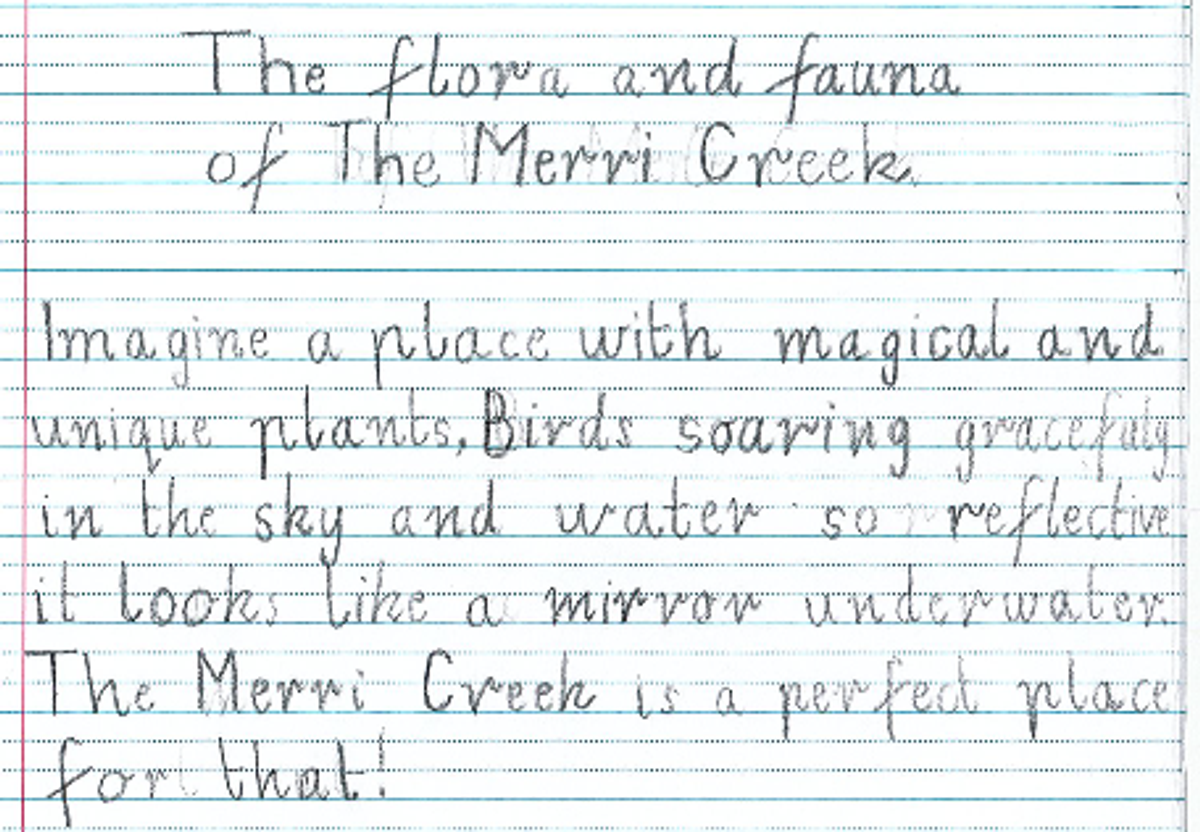 The flora and fauna
of The Merri Creek.
Imagine a place with magical and
unique plants, Birds soaring gracefuly
in the sky and water so reflective
it looks like a mirror underwater.
The Merri Creek is a perfect place
for that!